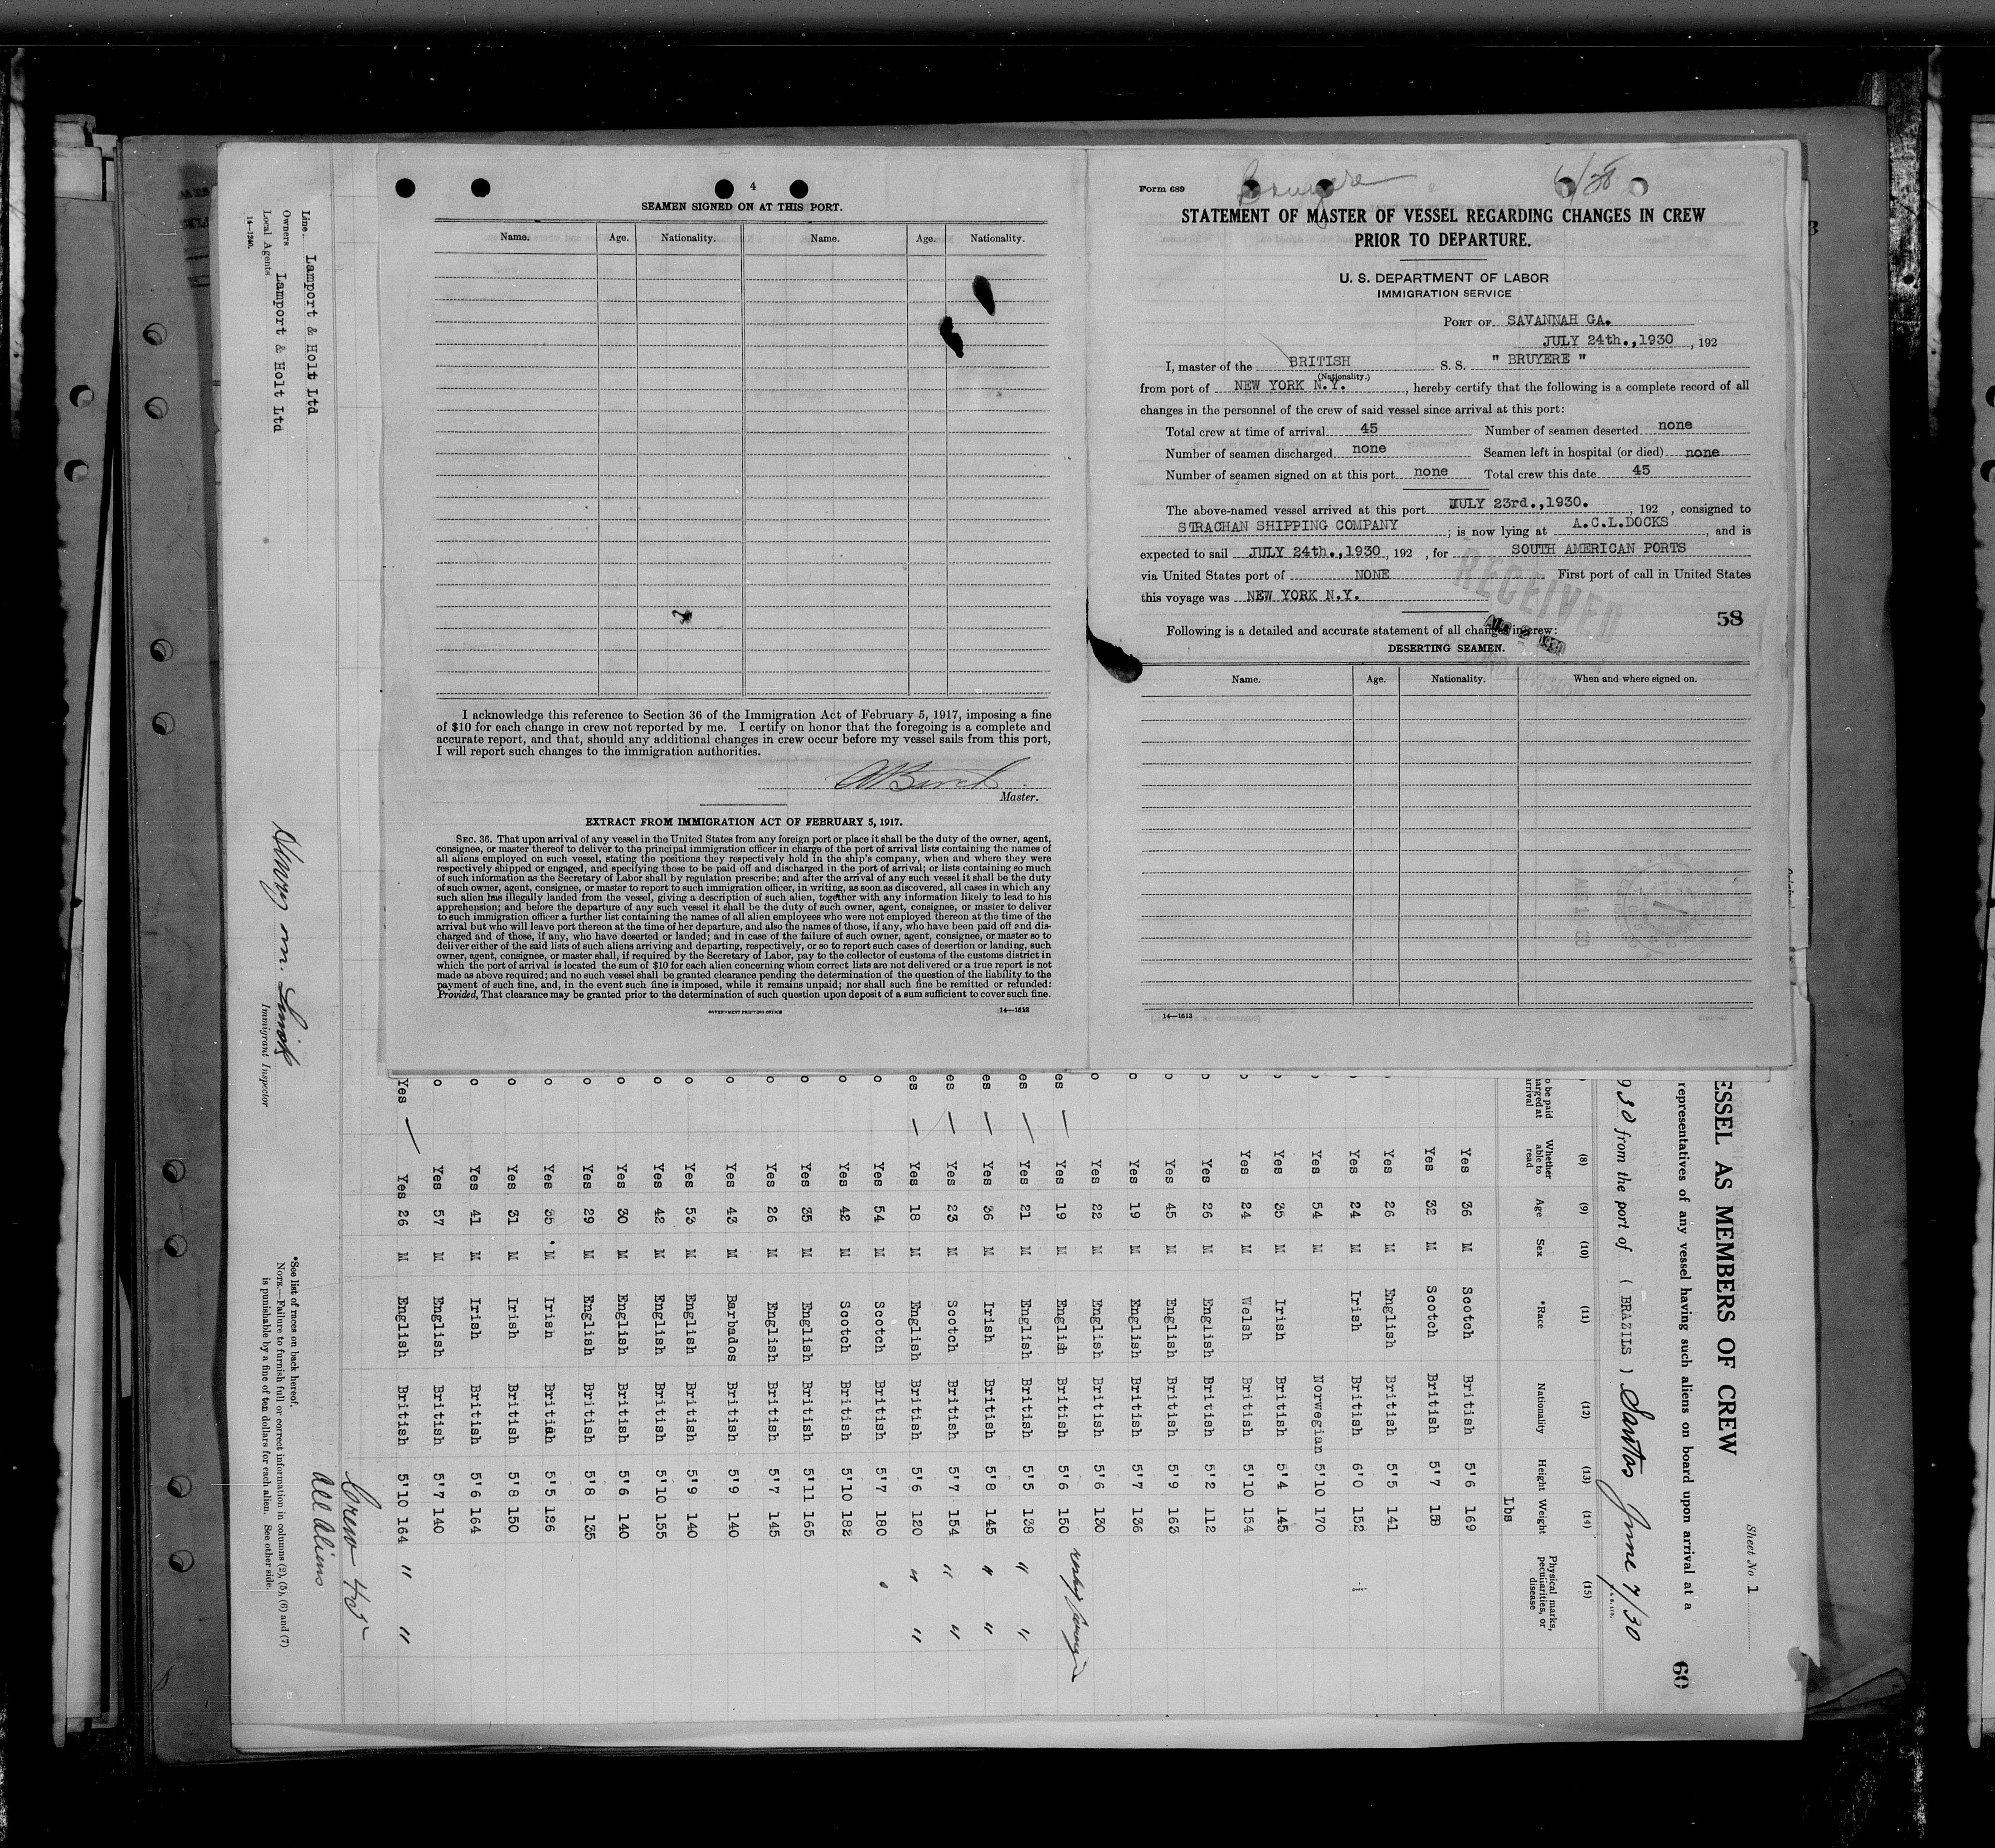 4
SEAMEN SIGNED ON AT THIS PORT.
Name. Age. Nationality. Name. Age. Nationality.
I acknowledge this reference to Section 36 of the Immigration Act of February 5, 1917, imposing a fine
of $10 for each change in crew not reported by me. I certify on honor that the foregoing is a complete and
accurate report, and that, should any additional changes in crew occur before my vessel sails from this port,
I will report such changes to the immigration authorities.
Master.
EXTRACT FROM IMMIGRATION ACT OF FEBRUARY 5, 1917.
SEC. 36. That upon arrival of any vessel in the United States from any foreign port or place it shall be the duty of the owner, agent,
consignee, or master thereof to deliver to the principal immigration officer in charge of the port of arrival lists containing the names of
all aliens employed on such vessel, stating the positions they respectively hold in the ship's company, when and where they were
respectively shipped or engaged, and specifying those to be paid off and discharged in the port of arrival; or lists containing so much
of such information as the Secretary of Labor shall by regulation prescribe; and after the arrival of any such vessel it shall be the duty
of such owner, agent, consignee, or master to report to such immigration officer, in writing, as soon as discovered, all cases in which any
such alien has illegally landed from the vessel, giving a description of such alien, together with any information likely to lead to his
apprehension; and before the departure of any such vessel it shall be the duty of such owner, agent, consignee, or master to deliver
to such immigration officer a further list containing the names of all alien employees who were not employed thereon at the time of the
arrival but who will leave port thereon at the time of her departure, and also the names of those, if any, who have been paid off and dis-
charged and of those, if any, who have deserted or landed; and in case of the failure of such owner, agent, consignee, or master so to
deliver either of the said lists of such aliens arriving and departing, respectively, or so to report such cases of desertion or landing, such
owner, agent, consignee, or master shall, if required by the Secretary of Labor, pay to the collector of customs of the customs district in
which the port of arrival is located the sum of $10 for each alien concerning whom correct lists are not delivered or a true report is not
made as above required; and no such vessel shall be granted clearance pending the determination of the question of the liability to the
payment of such fine, and, in the event such fine is imposed, while it remains unpaid; nor shall such fine be remitted or refunded:
Provided, That clearance may be granted prior to the determination of such question upon deposit of a sum sufficient to cover such fine.
GOVERNMENT PRINTING OFFICE 14—1613
Form 689
Bruyere 6/28
STATEMENT OF MASTER OF VESSEL REGARDING CHANGES IN CREW
PRIOR TO DEPARTURE.
U. S. DEPARTMENT OF LABOR
IMMIGRATION SERVICE
PORT OF SAVANNAH GA.
JULY 24th.,1930 , 192
I, master of the BRITISH S. S. " BRUYERE "
(Nationality.)
from port of NEW YORK N.Y. , hereby certify that the following is a complete record of all
changes in the personnel of the crew of said vessel since arrival at this port:
Total crew at time of arrival 45 Number of seamen deserted none
Number of seamen discharged none Seamen left in hospital (or died) none
Number of seamen signed on at this port none Total crew this date 45
The above-named vessel arrived at this port JULY 23rd.,1930. , 192 , consigned to
STRACHAN SHIPPING COMPANY ; is now lying at A.C.L.DOCKS , and is
expected to sail JULY 24th.,1930 , 192 , for SOUTH AMERICAN PORTS
via United States port of NONE First port of call in United States
this voyage was NEW YORK N.Y.
RECEIVED
58
Following is a detailed and accurate statement of all changes in crew:
DESERTING SEAMEN.
Name. Age. Nationality. When and where signed on.
14—1613
Sheet No 1
60
ESSEL AS MEMBERS OF CREW
representatives of any vessel having such aliens on board upon arrival at a
930 from the port of ( BRAZILS ) Santos June 7/30
(8) (9) (10) (11) (12) (13) (14) (15)
o be paid
harged at
arrival
Whether able to read Age Sex *Race Nationality Height Weight Physical marks, peculiarities, or disease
Lbs
Yes 36 M Scotch British 5'6 169
Yes 32 M Scotch British 5'7 158
Yes 26 M English British 5'5 141
Yes 24 M Irish British 6'0 152
54 M Norwegian 5'10 170
Yes 35 M Irish British 5'4 145
Yes 24 M Welsh British 5'10 154
Yes 26 M English British 5'2 112
o Yes 45 M English British 5'9 163
o Yes 19 M English British 5'7 136
o Yes 22 M English British 5'6 130
es — Yes 19 M English British 5'6 150
es — Yes 21 M English British 5'5 138 " "
es — Yes 36 M Irish British 5'8 145 " "
es — Yes 23 M Scotch British 5'7 154 " "
es — Yes 18 M English British 5'6 120 " "
o Yes 54 M Scotch British 5'7 180
o Yes 42 M Scotch British 5'10 182
o Yes 35 M English British 5'11 165
o Yes 26 M English British 5'7 145
o Yes 43 M Barbados British 5'9 140
o Yes 53 M English British 5'9 140
o Yes 42 M English British 5'10 155
o Yes 30 M English British 5'6 140
o Yes 29 M English British 5'8 135
o Yes 35 M Irish British 5'5 126
o Yes 31 M Irish British 5'8 150
o Yes 41 M Irish British 5'6 164
o Yes 57 M English British 5'7 140
Yes — Yes 26 M English British 5'10 164 " "
Crew 45
All Aliens
Line Lamport & Holt Ltd
Owners Lamport & Holt Ltd
Local Agents
14—1240.
Immigrant Inspector
*See list of races on back hereof.
NOTE.—Failure to furnish full or correct information in columns (2), (5), (6) and (7)
is punishable by a fine of ten dollars for each alien. See other side.